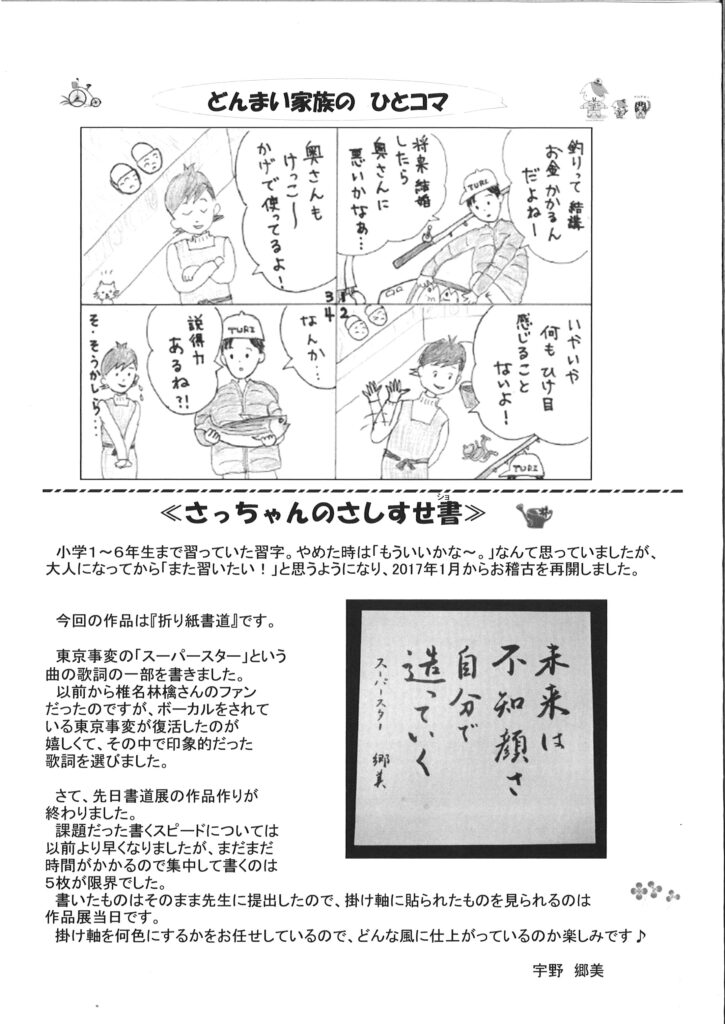 どんまい家族の ひとコマ
釣りって結構
お金かかるん
だよねー
将来結婚
したら
奥さんに
悪いかなぁ…
TURI
1
いやいや
何もひけ目
感じること
ないよ!
TURI
2
奥さんも
けっこ〜
かげで使ってるよ!
3
なんか…
説得力
あるね?!
TURI
そ、そうかしら…
4
≪さっちゃんのさしすせ書≫
ショ
小学1~6年生まで習っていた習字。やめた時は「もういいかな~。」なんて思っていましたが、
大人になってから「また習いたい!」と思うようになり、2017年1月からお稽古を再開しました。
今回の作品は『折り紙書道』です。
東京事変の「スーパースター」という
曲の歌詞の一部を書きました。
以前から椎名林檎さんのファン
だったのですが、ボーカルをされて
いる東京事変が復活したのが
嬉しくて、その中で印象的だった
歌詞を選びました。
さて、先日書道展の作品作りが
終わりました。
課題だった書くスピードについては
以前より早くなりましたが、まだまだ
時間がかかるので集中して書くのは
5枚が限界でした。
書いたものはそのまま先生に提出したので、掛け軸に貼られたものを見られるのは
作品展当日です。
掛け軸を何色にするかをお任せしているので、どんな風に仕上がっているのか楽しみです♪
宇野 郷美
未来は
不知顔さ
自分で
造っていく
スーパースター 郷美